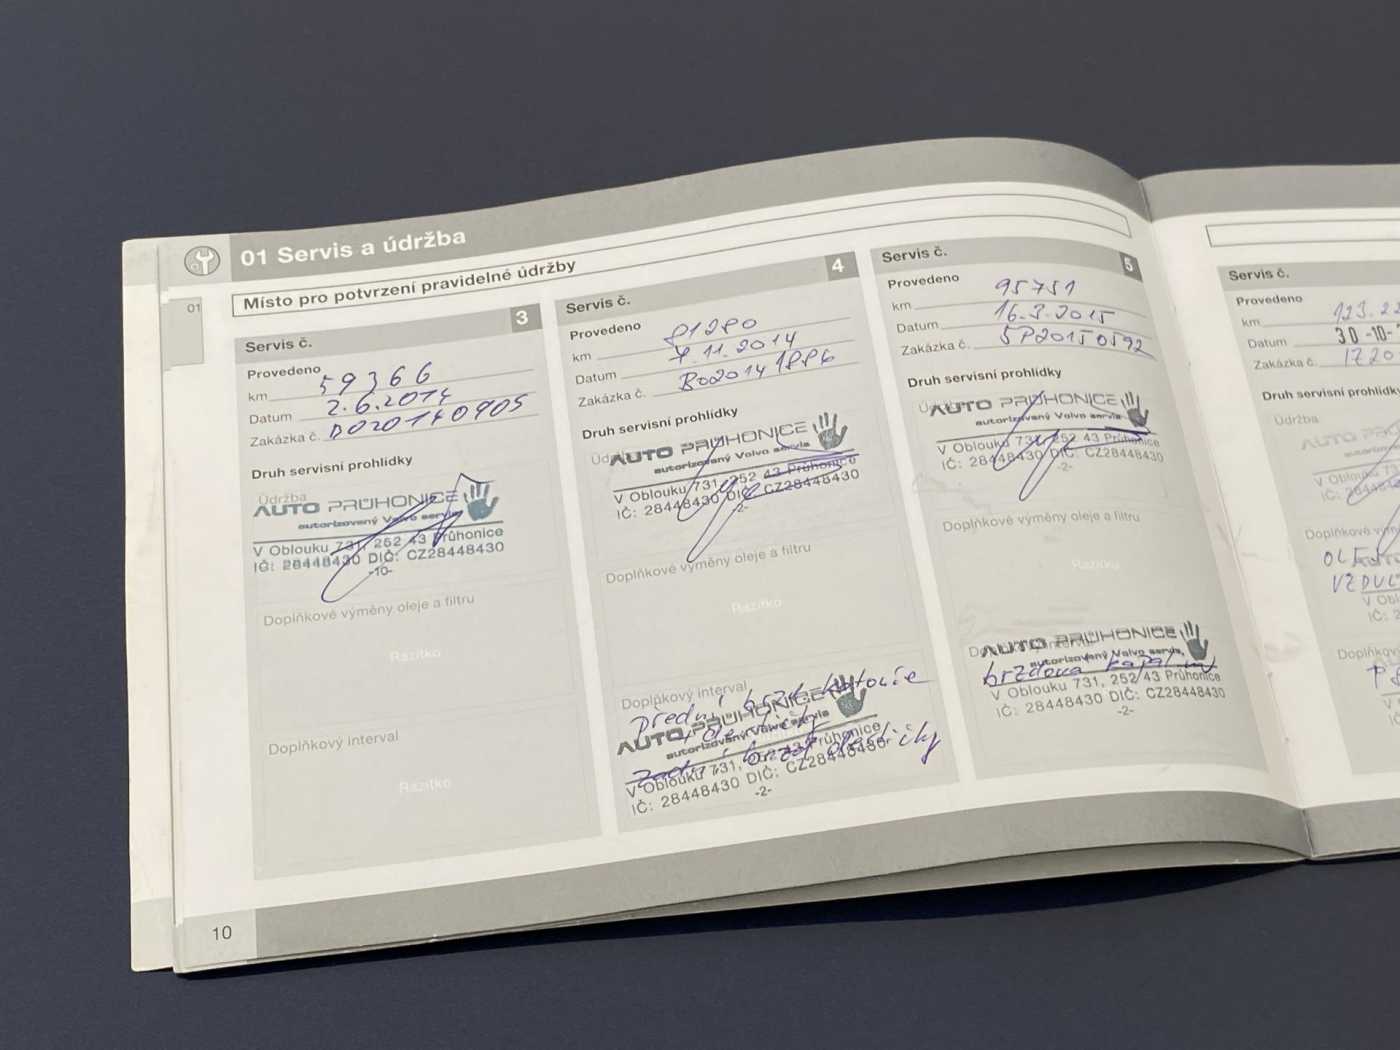 01 Servis a údržba
01
Místo pro potvrzení pravidelné údržby
Servis č. 3
Provedeno
km 59366
Datum 2.6.2014
Zakázka č. DO20140905
Druh servisní prohlídky
Údržba
AUTO PRŮHONICE
autorizovaný Volvo servis
V Oblouku 731, 252 43 Průhonice
IČ: 28448430 DIČ: CZ28448430
-10-
Doplňkové výměny oleje a filtru
Razítko
Doplňkový interval
Razítko
10
Servis č. 4
Provedeno
km 81280
Datum 7.11.2014
Zakázka č. BO20141886
Druh servisní prohlídky
AUTO PRŮHONICE
autorizovaný Volvo servis
V Oblouku 731, 252 43 Průhonice
IČ: 28448430 DIČ: CZ28448430
-2-
Doplňkové výměny oleje a filtru
Razítko
Doplňkový interval
přední brzd. kotouče
AUTO PRŮHONICE
autorizovaný Volvo servis
V Oblouku 731, 252 43 Průhonice
IČ: 28448430 DIČ: CZ28448430
-2-
Servis č. 5
Provedeno
km 95751
Datum 16.3.2015
Zakázka č. SP20150592
Druh servisní prohlídky
AUTO PRŮHONICE
autorizovaný Volvo servis
V Oblouku 731, 252 43 Průhonice
IČ: 28448430 DIČ: CZ28448430
-2-
Doplňkové výměny oleje a filtru
Razítko
AUTO PRŮHONICE
autorizovaný Volvo servis,
brzdová kapalina
V Oblouku 731, 252 43 Průhonice
IČ: 28448430 DIČ: CZ28448430
-2-
Servis č.
Provedeno
km 123.22
Datum 30 -10-
Zakázka č. 1720
Druh servisní prohlídky
Údržba
AUTO PR
autorizov
V Oblouku
IČ: 28448
Doplňkov
V Obl
Doplňkový